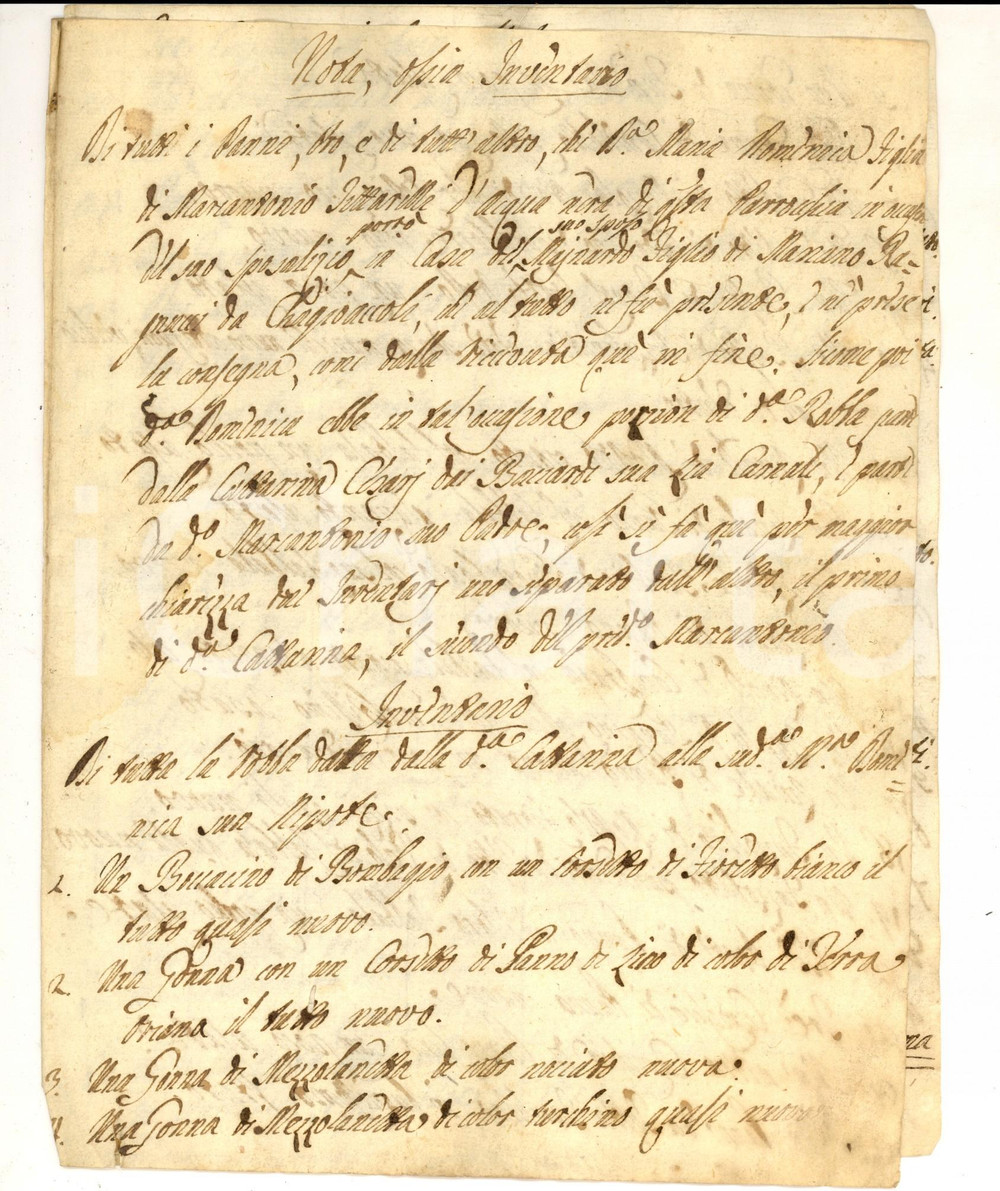 Nota, ossia Inventario
Di tutti i Panni, Oro, e di tutt' altro, chè D.ª Maria Domenica Figlia
di Marcantonio D'acqua nera di qsta Parrochia in
del suo sposalizio portò in Casa del suo sposo Majnardo Figlio di Mariano Ra=
gnucci da che al tutto ne fù presente, e ne prese
la consegna, come dalla riccevuta quì in fine. Siccome poi
d.ª Domenica ebbe in tal'occasione porzion di d.ª Robba parte
dalla Cattarina dai Bacciardi sua Zia Carnale, e parte
da d.º Marcantonio suo Padre, così si fà quì per maggior
chiarezza due Inventarj uno separato dall' altro, il primo
di d.ª Cattarina, il secondo del pred.º Marcantonio.
Inventario
Di tutta la robba datta dalla d.ª Cattarina alla sud.ª M.ª Dome=
nica sua Nipote.
1. Un Boccacino di Bombagio con un Corsetto di Fioretto bianco il
tutto quasi nuovo.
2. Una Gonna con un Corsetto di Panno di Lino di color di Terra
oriana il tutto nuovo.
3. Una Gonna di Mezzolanetta di color nociato nuova.
4. Una Gonna di Mezzolanetta di color turchino quasi nuova